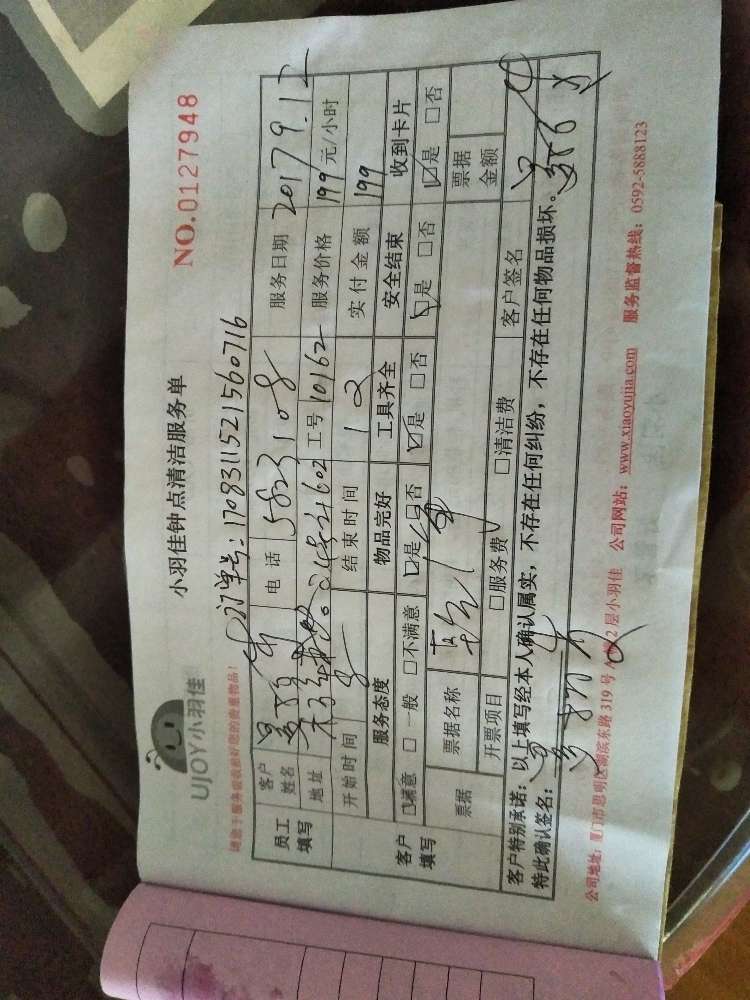 UJOY小羽佳
小羽佳钟点清洁服务单
NO.0127948
请您于服务前收拾好您的贵重物品!
订单号:1708311521560716
员工填写
客户姓名
电话 5823108
服务日期 2017 9.12
地址
工号 10162
服务价格 199元/小时
开始时间 8
结束时间 12
实付金额 199
客户填写
服务态度 物品完好 工具齐全 安全结束 收到卡片
☑满意 □一般 □不满意 ☑是 □否 ☑是 □否 ☑是 □否 ☑是 □否
票据
票据名称
票据金额
开票项目 □服务费 □清洁费 客户签名
客户特别承诺:以上填写经本人确认属实,不存在任何纠纷,不存在任何物品损坏。
特此确认签名:
公司地址:厦门市思明区湖滨东路319号A幢2层小羽佳 公司网站:www.xiaoyujia.com 服务监督热线:0592-5888123